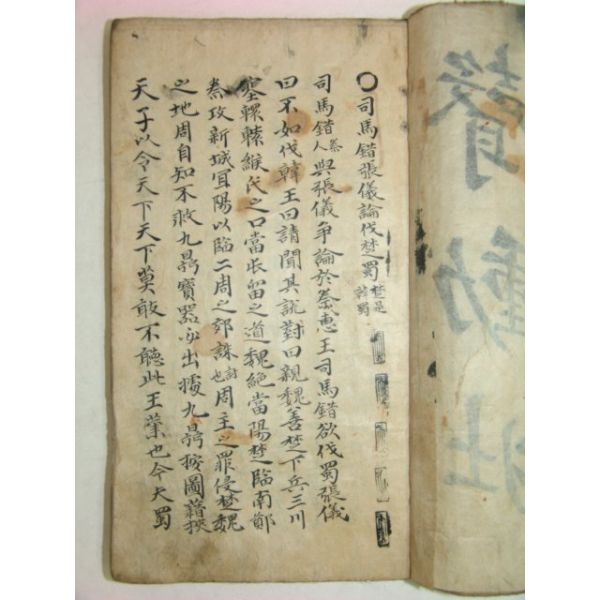 ○司馬錯張儀論伐楚蜀楚是韓蜀
司馬錯秦人與張儀爭論於秦惠王司馬錯欲伐蜀張儀
曰不如伐韓王曰請聞其說對曰親魏善楚下兵三川
塞轘轅緱氏之口當屯留之道魏絶當陽楚臨南鄭
秦攻新城冝陽以臨二周之郊誅討也周主之罪侵楚魏
之地周自知不救九鼎寶器必出據九鼎按圖籍挾
天子以令天下天下莫敢不聽此王業也今夫蜀
動